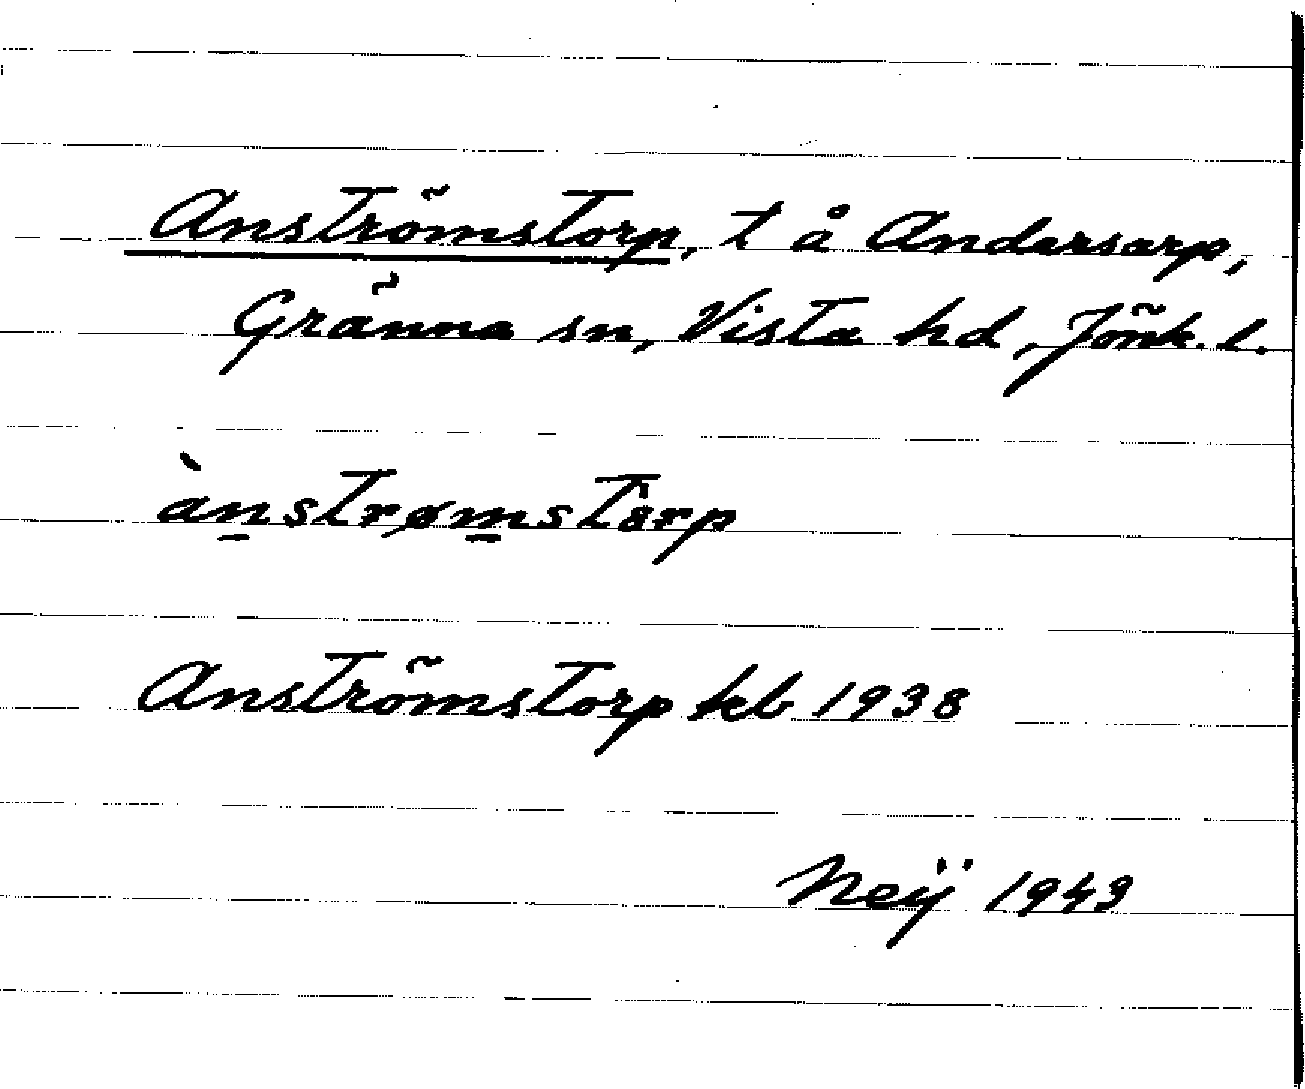 Anströmstorp, t å Andersarp,
Gränna sn, Vista hd, Jönk. l.
ànstrømstårp
Anströmstorp kb 1938
Neij 1943